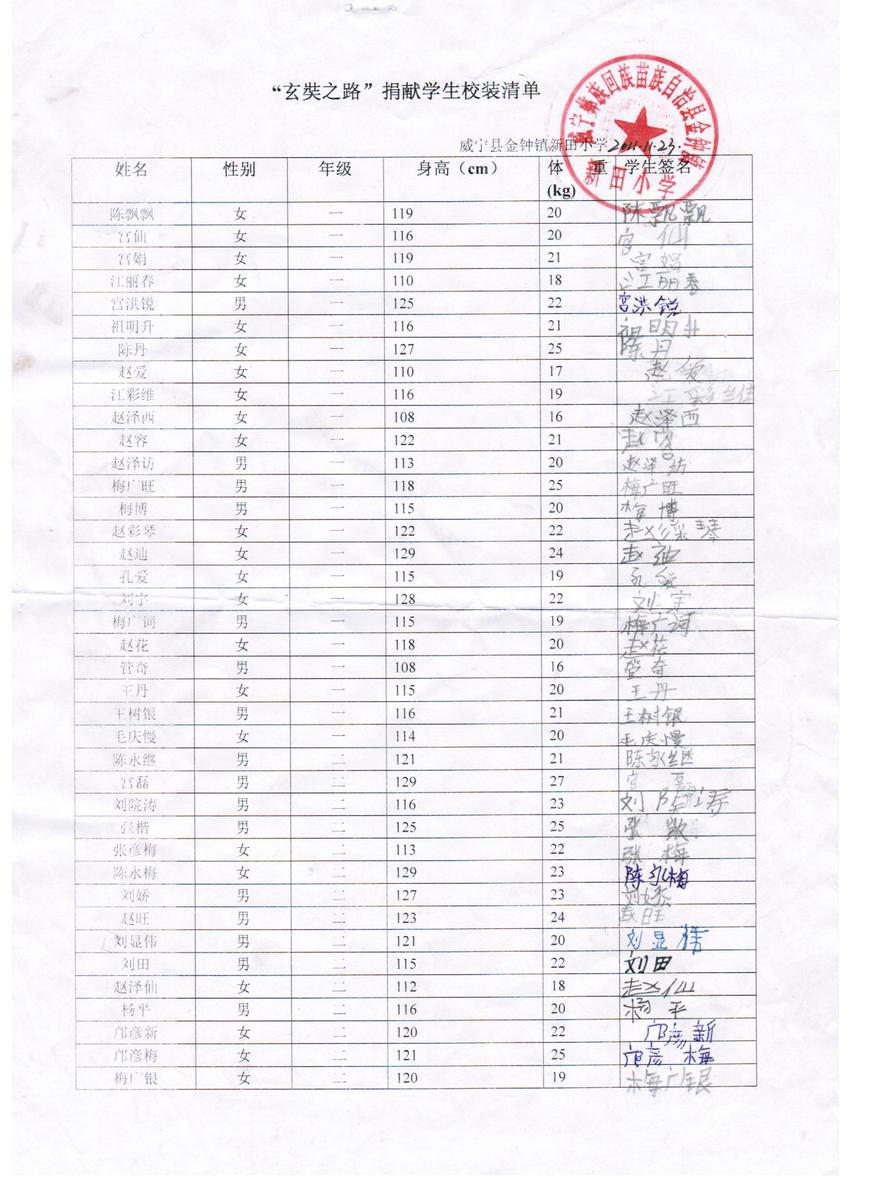 “玄奘之路”捐献学生校装清单
威宁彝族回族苗族自治县金钟镇
新田小学
威宁县金钟镇新田小学2011.11.23.
姓名 性别 年级 身高（cm） 体重(kg) 学生签名
陈飘飘 女 一 119 20 陈飘飘
宫仙 女 一 116 20 宫仙
宫娟 女 一 119 21 宫娟
江丽春 女 一 110 18 江丽春
宫洪锐 男 一 125 22 宫洪锐
祖明升 女 一 116 21 祖明升
陈丹 女 一 127 25 陈丹
赵爱 女 一 110 17 赵爱
江彩维 女 一 116 19 江彩维
赵泽西 女 一 108 16 赵泽西
赵容 女 一 122 21 赵容
赵泽访 男 一 113 20 赵泽访
梅广旺 男 一 118 25 梅广旺
梅博 男 一 115 20 梅博
赵彩琴 女 一 122 22 赵彩琴
赵迪 女 一 129 24 赵迪
孔爱 女 一 115 19 孔爱
刘宇 女 一 128 22 刘宇
梅广词 男 一 115 19 梅广词
赵花 女 一 118 20 赵花
管奇 男 一 108 16 管奇
王丹 女 一 115 20 王丹
王树银 男 一 116 21 王树银
毛庆慢 女 一 114 20 毛庆慢
陈永继 男 二 121 21 陈永继
宫磊 男 二 129 27 宫磊
刘院涛 男 二 116 23 刘院涛
张楷 男 二 125 25 张
张彦梅 女 二 113 22 张梅
陈永梅 女 二 129 23 陈永梅
刘娇 男 二 127 23 刘娇
赵旺 男 二 123 24 赵旺
刘显伟 男 二 121 20 刘显伟
刘田 男 二 115 22 刘田
赵泽仙 女 二 112 18 赵仙
杨平 男 二 116 20 杨平
邝彦新 女 二 120 22 邝彦新
邝彦梅 女 二 121 25 邝彦梅
梅广银 女 二 120 19 梅广银